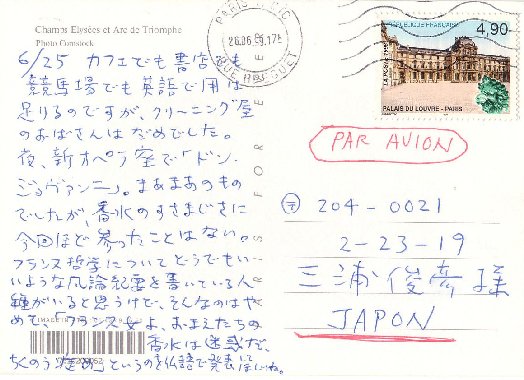 Champs Elysées et Arc de Triomphe
Photo Comstock
6/25 カフェでも書店でも
競馬場でも英語で用は
足りるのですが、クリーニング屋
のおばさんはだめでした。
夜、新オペラ室で「ドン・
ジョヴァンニ」。まあまあのもの
でしたが、香水のすさまじさに
今回ほど参ったことはない。
フランス哲学についてどうでもい
いような論紀要を書いている人
種がいると思うけど、そんなのはや
めて、「フランス女よ、おまえたちの
香水は迷惑だ、
というのを仏語で発表してほしいね。
PARIS
26.06
17H
REPUBLIQUE FRANÇAISE
4,90
PALAIS DU LOUVRE - PARIS
PAR AVION
〒 204-0021
2-23-19
三浦俊彦様
JAPON